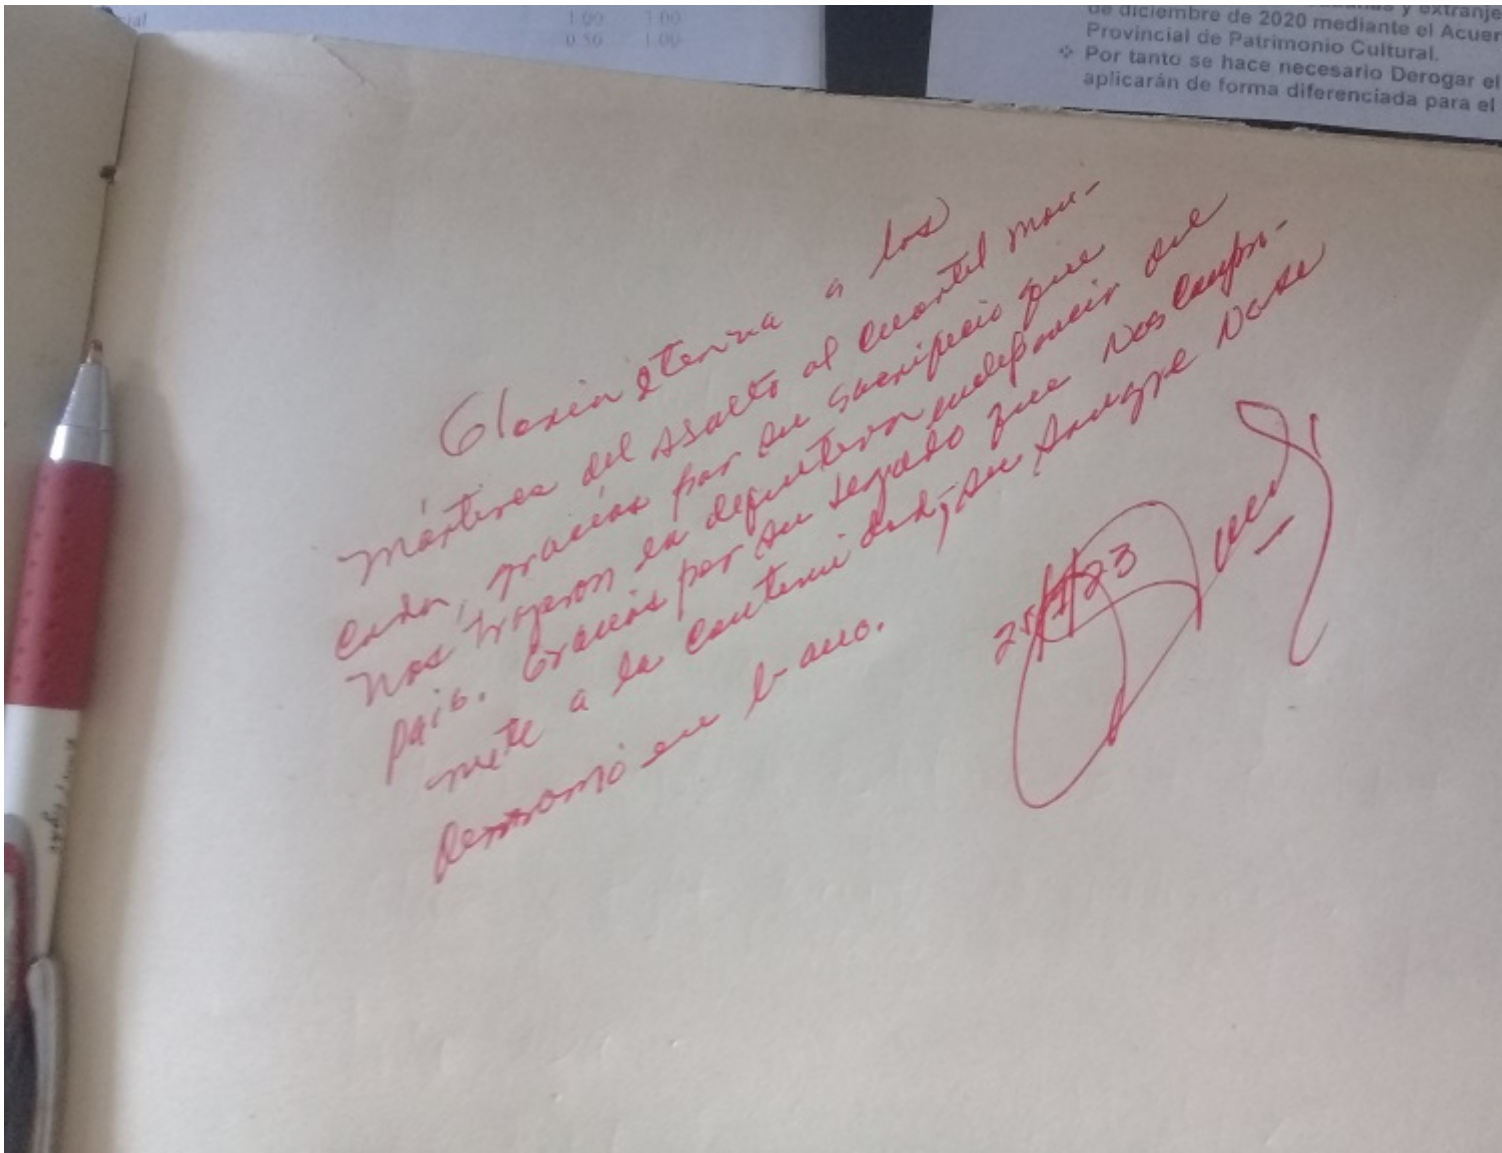 cial 1.00 3.00
0.50 1.00
y extranje
de diciembre de 2020 mediante el Acuer
Provincial de Patrimonio Cultural.
❖ Por tanto se hace necesario Derogar el
aplicarán de forma diferenciada para el
Gloria eterna a los
mártires del asalto al cuartel mon-
cada, gracias por su sacrificio que
nos trajeron la definitiva independencia del
país. Gracias por su legado que nos compro-
mete a la continuidad, su sangre no se
derramó en vano.
25/1/23